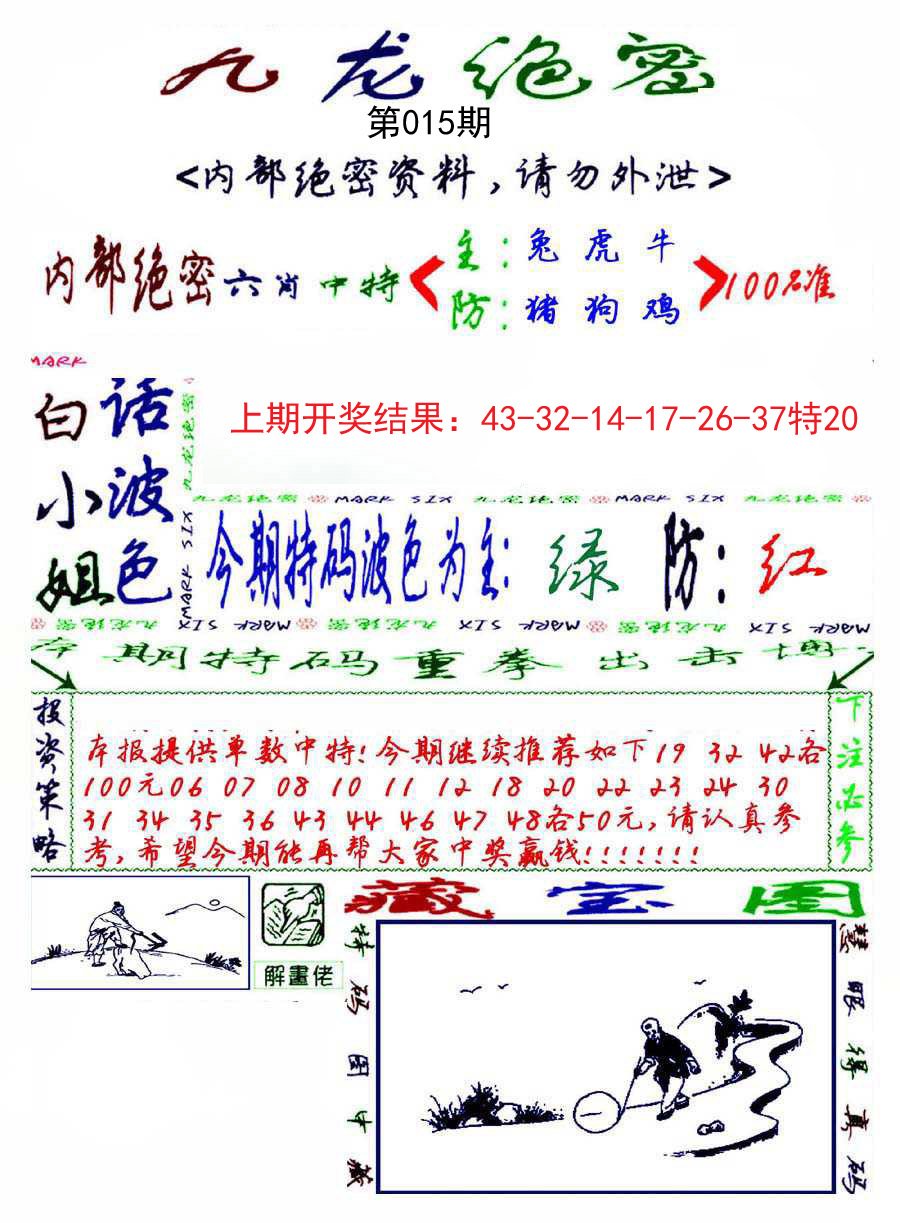 九龙绝密
第015期
<内部绝密资料,请勿外泄>
内部绝密六肖中特
主:兔虎牛
防:猪狗鸡
100%准
MARK
白小姐
话波色
九龙绝密
MARK SIX
上期开奖结果：43-32-14-17-26-37特20
九龙绝密 MARK SIX 九龙绝密 MARK SIX 九龙绝密
今期特码波色为主:绿 防:红
九龙绝密 MARK SIX 九龙绝密 MARK SIX 九龙绝密 MARK SIX
本期特码重拳出击
投资策略
本报提供单数中特!今期继续推荐如下19 32 42各
100元06 07 08 10 11 12 18 20 22 23 24 30
31 34 35 36 43 44 46 47 48各50元,请认真参
考,希望今期能再帮大家中奖赢钱!!!!!!!
下注必参
解畫佬
藏宝图
特码图中藏
一
慧眼得真码